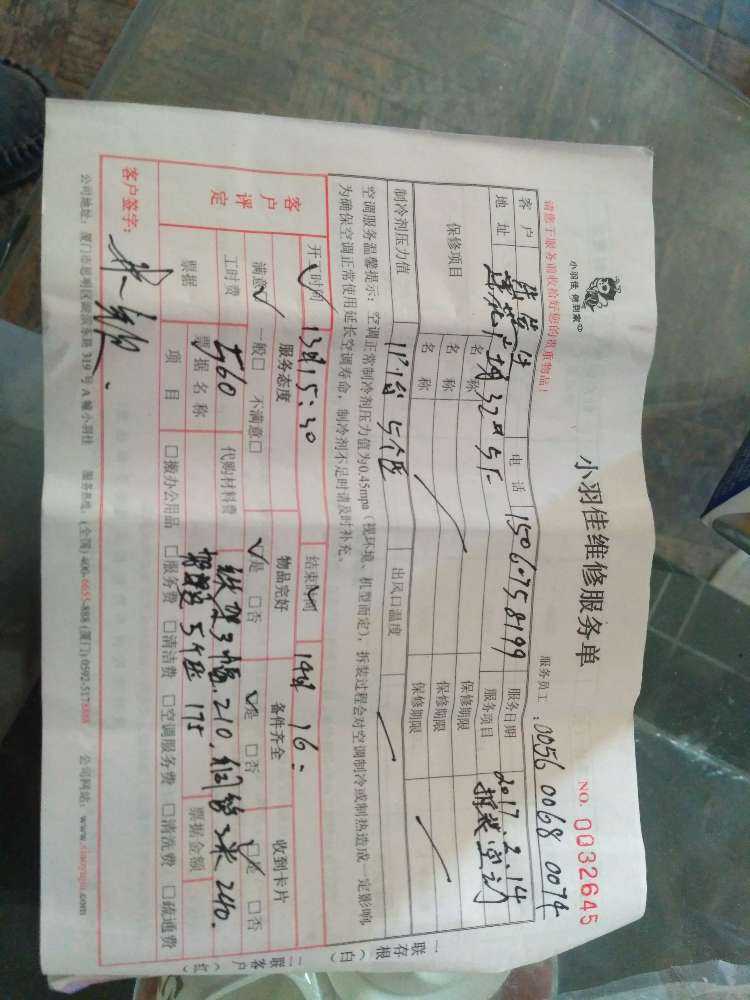 小羽佳 帮到家
小羽佳维修服务单
NO. 0032645
请您于服务前收拾好您的贵重物品！
服务员工：0056 0068 0074
客户
电话 15067758199
服务日期 2017.2.14
地址 莲花广场32号5F
服务项目 拆装(空调)
保修项目
名称
保修期限
名称
保修期限
名称
保修期限
制冷剂压力值
出风口温度
空调服务温馨提示：空调正常制冷剂压力值为0.45mpa（视环境、机型而定），拆装过程会对空调制冷或制热造成一定影响，
为确保空调正常使用延长空调寿命，制冷剂不足时请及时补充。
开工时间 13日15:30
结束时间 14日16:
客户评定
服务态度
物品完好
备件齐全
收到卡片
满意☑ 一般□ 不满意□
☑是 □否
☑是 □否
☑是 □否
工时费 560
代购材料费 铁架3幅.210.铜管2米240.
175
票据
票据名称
票据金额
项目 □搬办公用品 □服务费 □清洁费 □空调服务费 □清洗费 □疏通费
客户签字：
公司地址：厦门市思明区莲前东路319号A幢小羽佳 服务热线：(全国)400-6655-888 (厦门)0592-5176888 公司网站：www.xiaoyujia.com
一联存根（白）
二联客户（红）